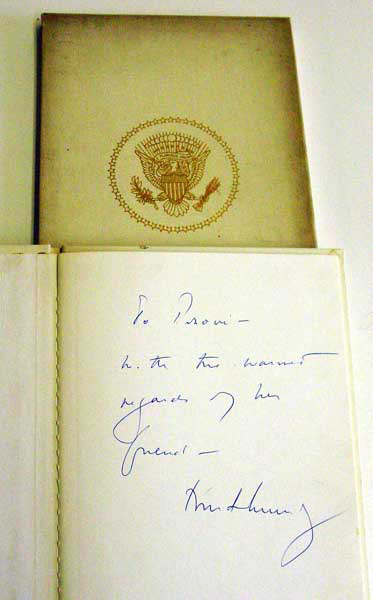 To Provi —
with the warmest
regards of her
friend —